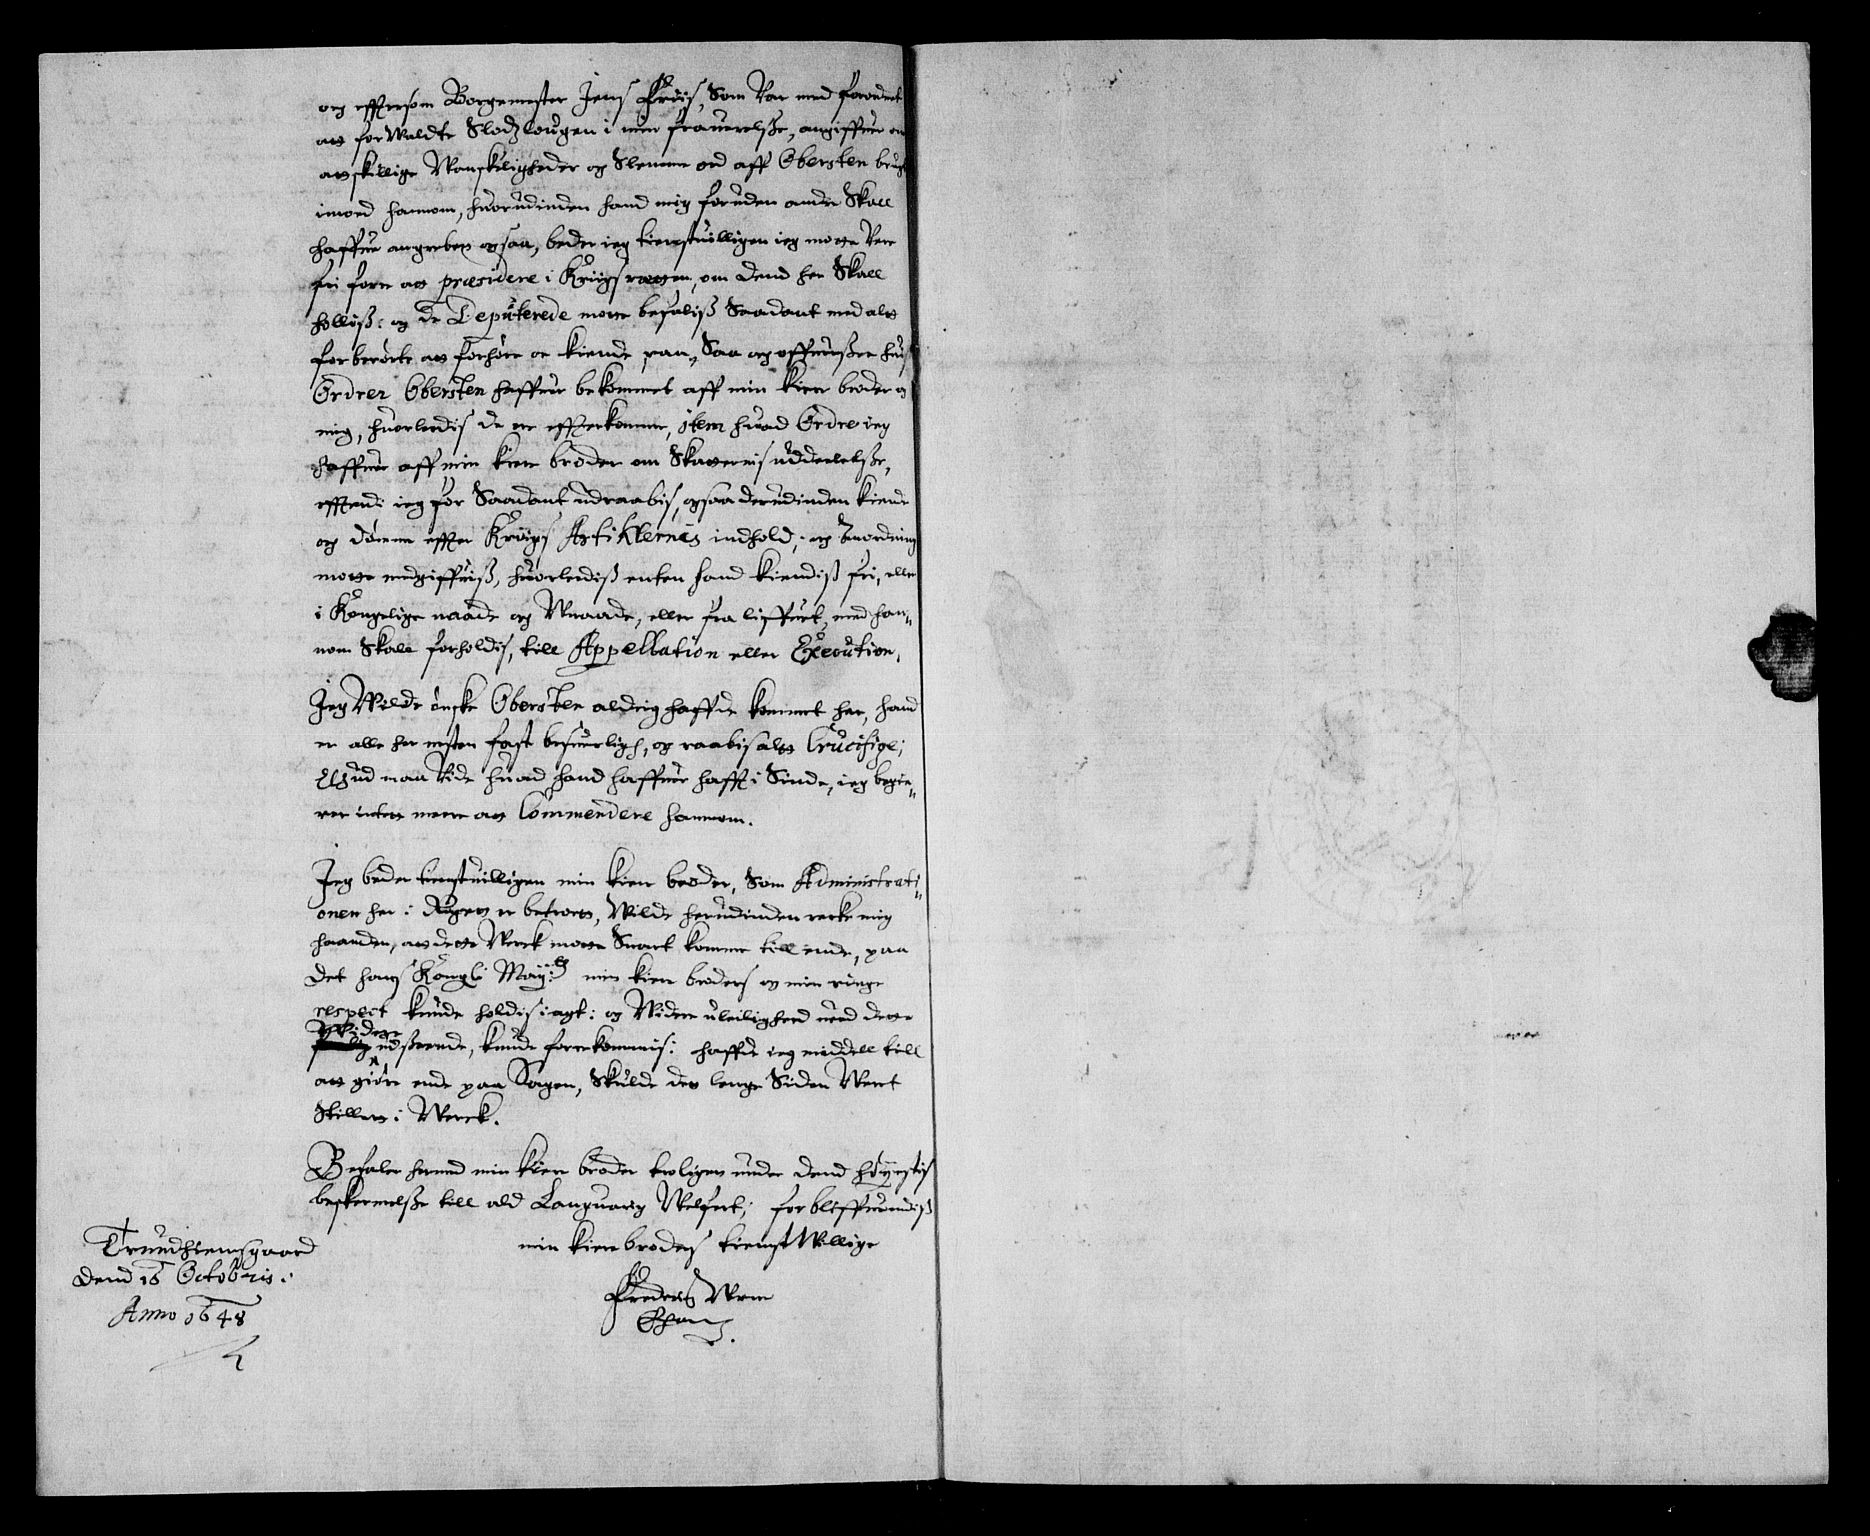 og efftersom Borgemester Jens Friis, Som Var med forordnet
att for Waldte Slodzlougen i min frauerelsße, angiffuer om
attskillige Wanskeligheder og Slemme ord aff Obersten brugt
imod hannom, huorudinden hand mig foruden andre Skall
haffue angreben ogsaa, beder ieg tienstuilligen ieg motte Vere
fri forre att præsidere i Kriigsretten, om dend her Skall
holldiß: og de Deputerede motte befaliß Saadant med alt
forberørte att forhøre oc kiende paa, Saa og offuersßee huis
Ordrer Obersten haffuer bekommet aff min kiere broder og
mig, huorledis de ere effterkomme, item huad Ordre ieg
haffuer aff min kiere broder om Skatternis uddeelelsße,
efftersom ieg for Saadant udraabis, ogsaa derudinden kiende
og dømme effter Krigs Artiklernes indhold, og Anordning
motte medgiffuiß, huorlediß enten hand kiendiß fri, eller
i Kongelige naade og Wnaade, eller fra liffuet, med han„
nom Skall forholdis, till Appellation eller Execution.
Jeg Wilde ønske Obersten aldrig haffde kommet her, hand
er alle her nesten fast besuerligh, og raabis alt Crucifige;
Gud maa Vide huad hand haffuer hafft i Sinde, ieg begie„
rer intet meere att Commendere hannom.
Jeg beder tienstuilligen min kiere broder, Som Administrati„
onen her i Riget er betroet, Wilde herudinden recke mig
haanden, att dette Werck motte Snart komme till ende, paa
det hans Kongl: May:tz min kiere broders og min ringe
respect kunde holdis i agt: og Widere uleilighed med dette
Widere
udsßeende, kunde forrekommis: haffde ieg middell till
att giøre ende paa Sagen, Skulde det lenge Siden Werit
Stillet i Werck.
Befaler hermed min kiere broder troligen under dend høyestis
beskermelsße till ald Languarig Welfert; forbliffuendiß
min kiere broders tienst Willige
Frederich Wrne
Eghen
Trundhiemsgaard
Dend 16 Octobris.
Anno 1648